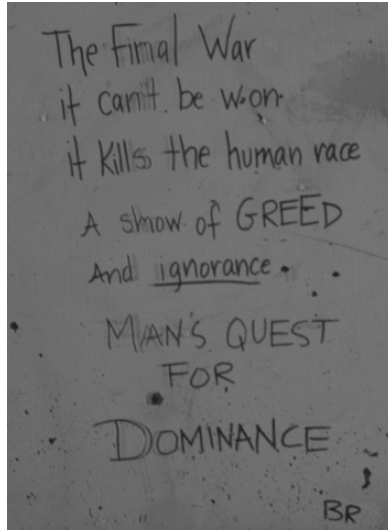 The Final War
it can't be won
it kills the human race
A show of GREED
And ignorance.
MAN'S QUEST
FOR
DOMINANCE
BR